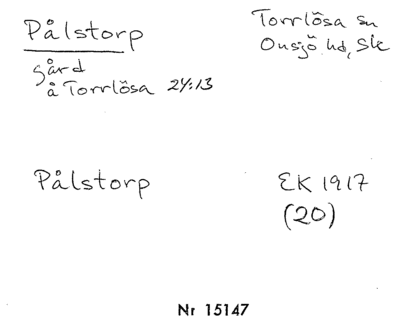 Pålstorp
Torrlösa sn
Onsjö hd, Sk
gård
å Torrlösa 24:13
Pålstorp
EK 1917
(20)
Nr 15147